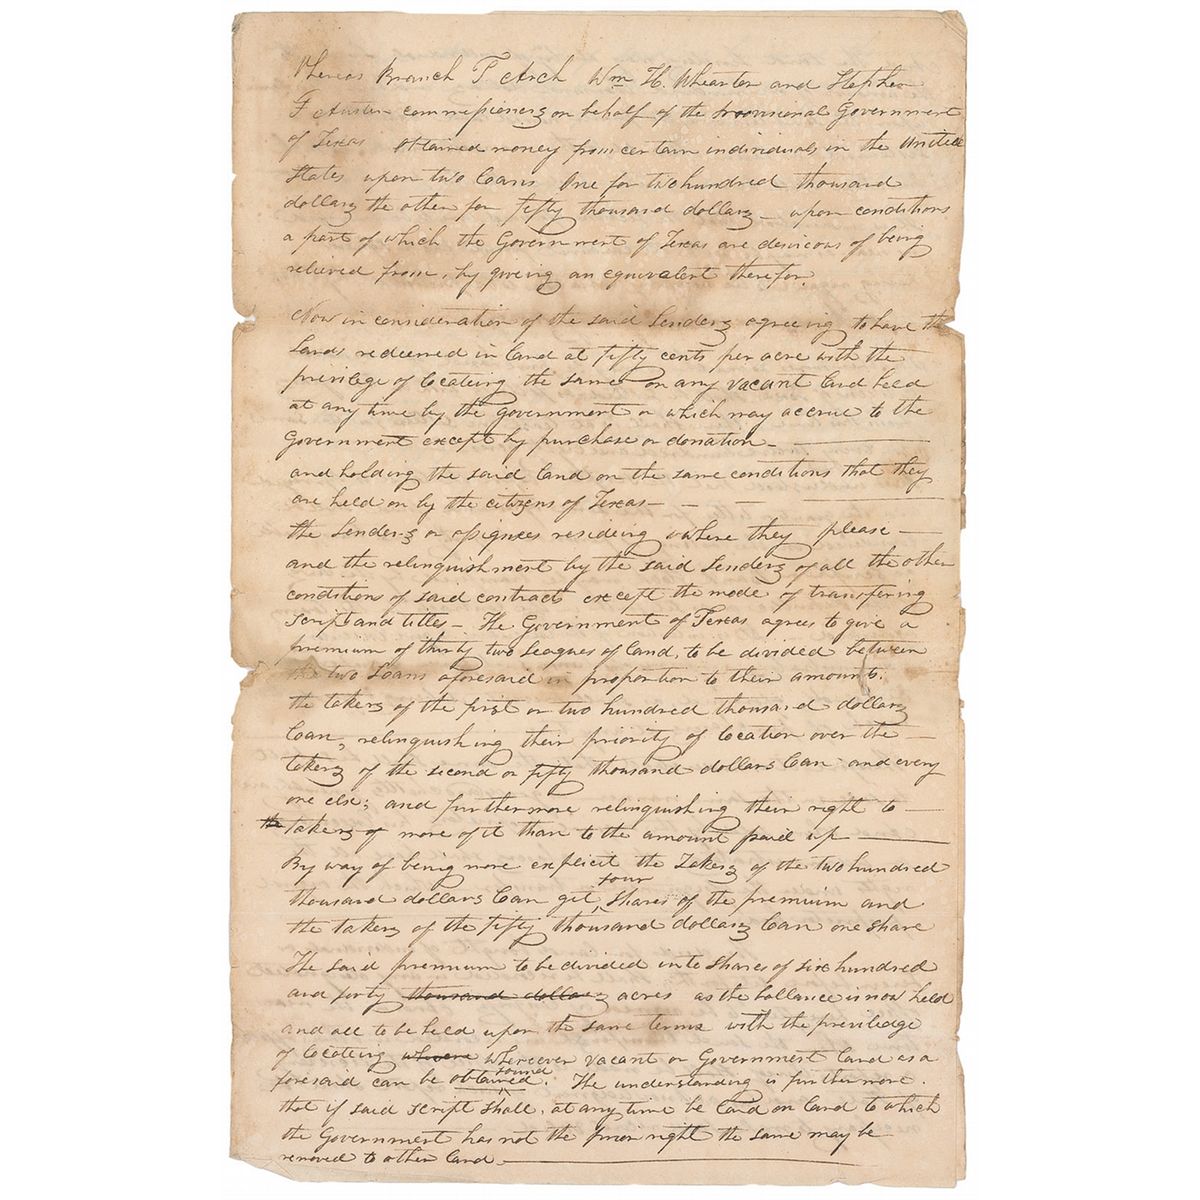 Whereas Branch T Arch Wm H. Whearton and Stephen
F Austin commissioners on behalf of the provisional Government
of Texas obtained money from certain individuals in the United
States upon two loans One for two hundred thousand
dollars the other for fifty thousand dollars – upon conditions
a part of which the Government of Texas are desirous of being
relieved from, by giving an equivalent therefor.
Now in consideration of the said Lenders agreeing to have the
Loans redeemed in land at fifty cents per acre with the
privilege of locateing the same on any vacant land held
at any time by the government or which may accrue to the
Government except by purchase or donation –
and holding the said land on the same conditions that they
are held on by the citizens of Texas –
the Lenders or assignees resideing where they please –
and the relinquishment by the said Lenders of all the other
conditions of said contract except the mode of transfering
script and titles – The Government of Texas agrees to give a
premium of thirty two Leagues of land, to be divided between
the two Loans aforesaid in proportion to their amounts.
the takers of the first or two hundred thousand dollars
loan, relinquishing their priority of location over the –
takers of the second or fifty thousand dollars loan and every
one else; and furthermore relinquishing their right to
the takers of more of it than to the amount paid up –
By way of being more explicit the Takers of the two hundred
four
thousand dollars loan get shares of the premium and
the takers of the fifty thousand dollars loan one share
The said premium to be divided into shares of six hundred
and forty thousand dollars acres as the ballance is now held
and all to be held upon the same terms with the previledge
of locateing where whereever vacant or Government land as a
found
foresaid can be obtained. The understanding is further more
that if said script shall, at any time be laid on land to which
the Government has not the prior right the same may be
removed to other land –